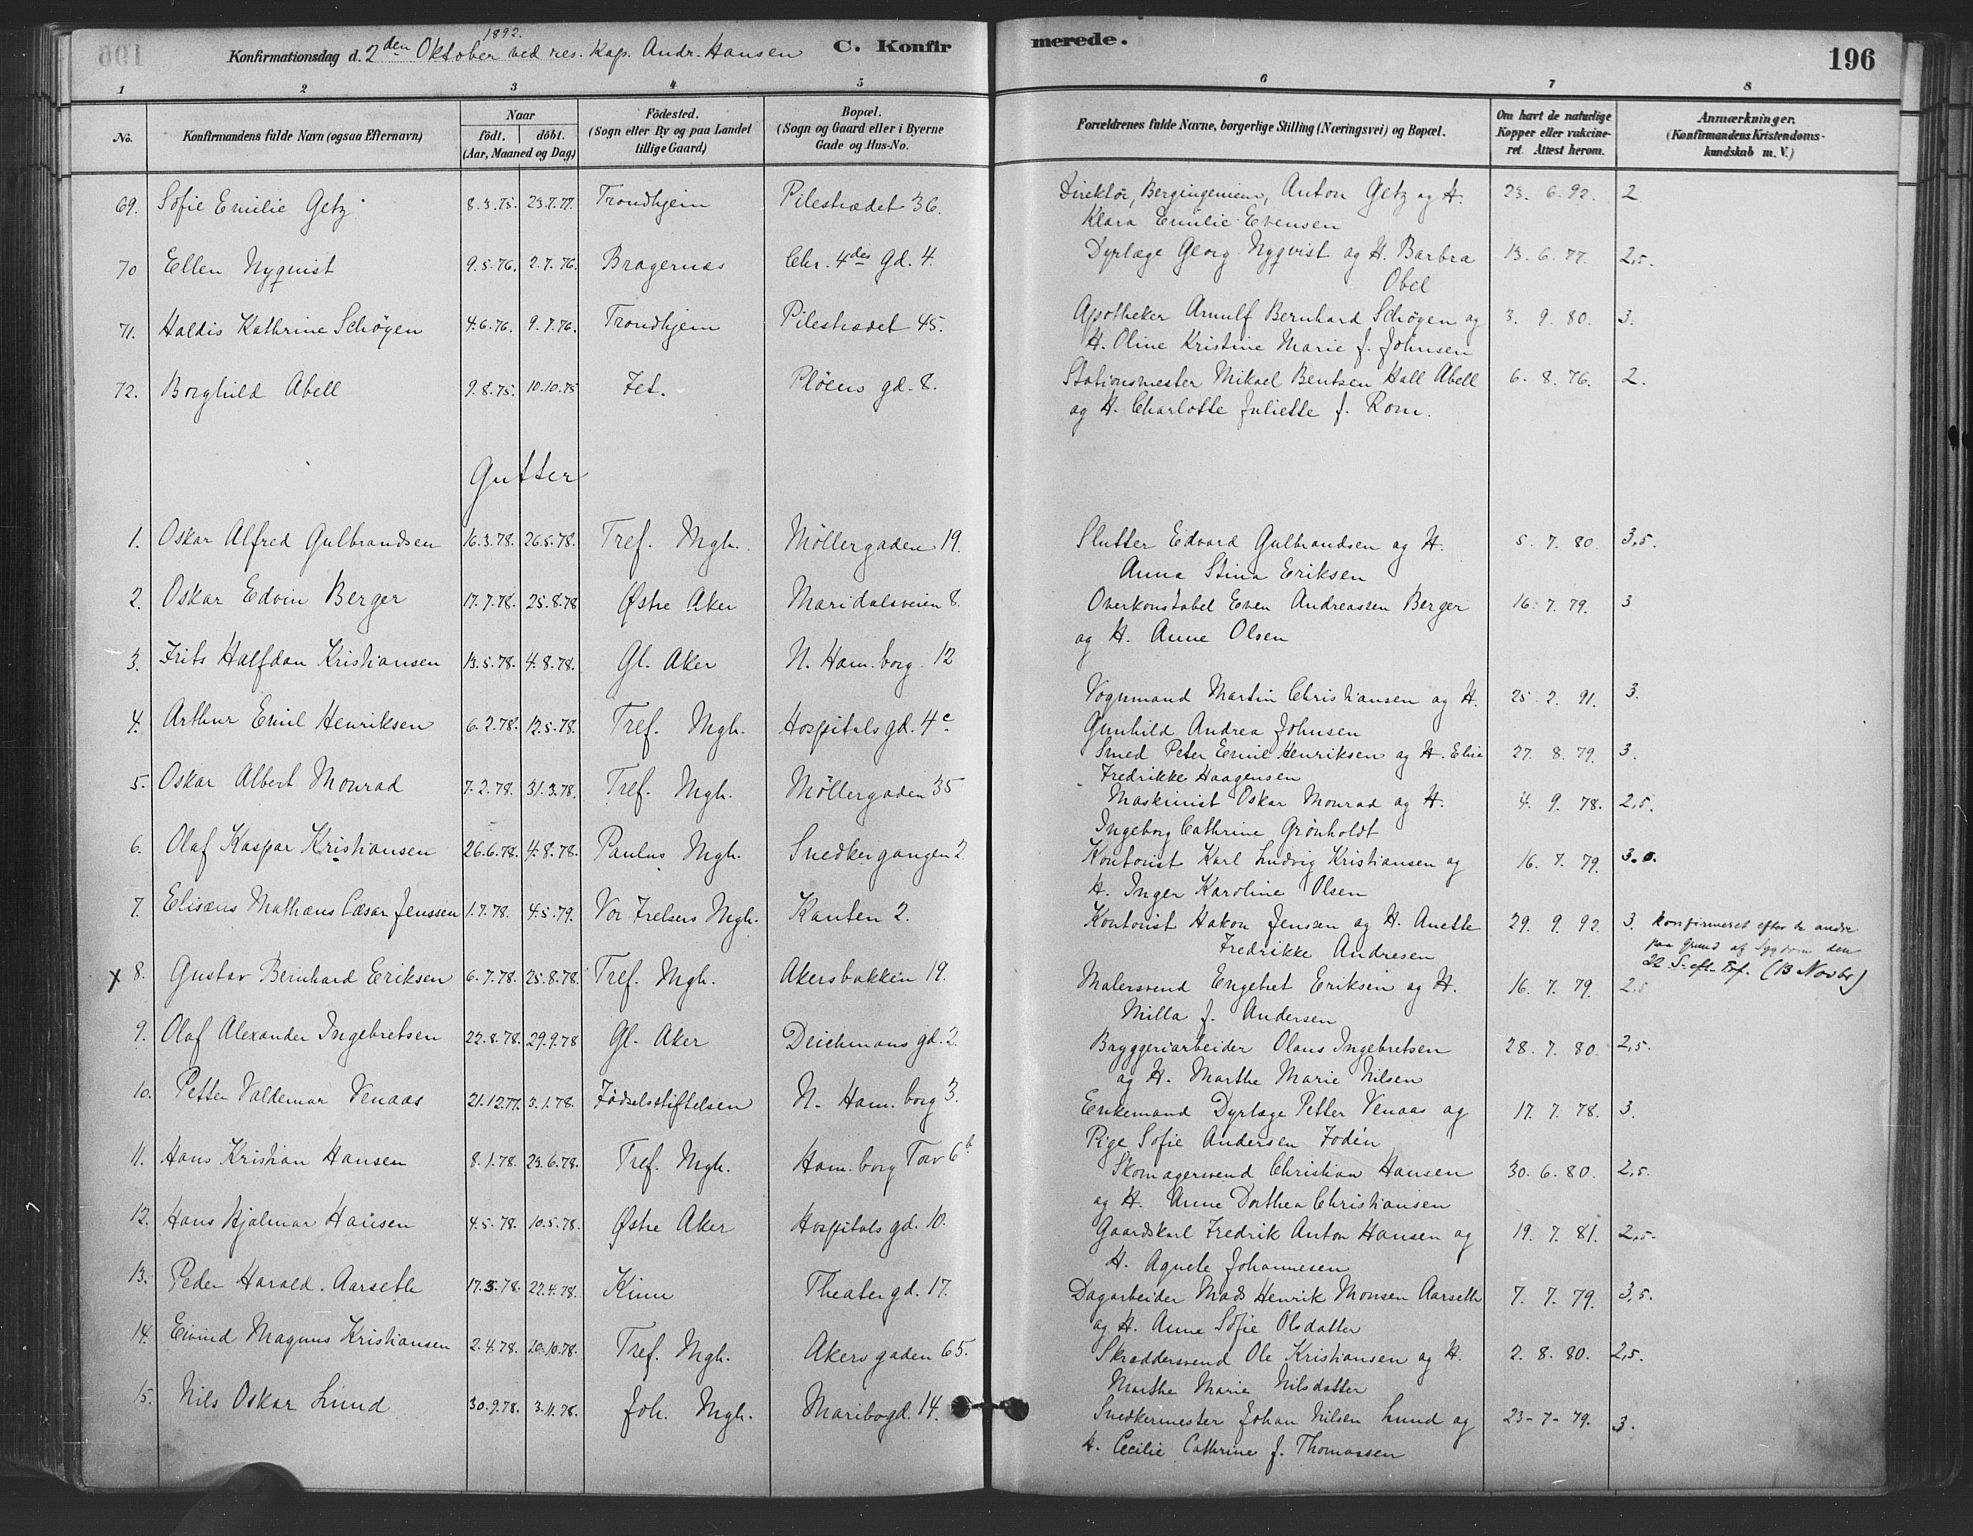 Konfirmationsdag d. 2den Oktober 1892 ved res. Kap. Andr. Hansen C. Konfirmerede. 196
1 2 3 4 5 6 7 8
No. Konfirmandens fulde Navn (ogsaa Efternavn) Naar født. døbt. (Aar, Maaned og Dag) Fødested. (Sogn eller By og paa Landet tillige Gaard) Bopæl. (Sogn og Gaard eller i Byerne Gade og Hus-No. Forældrenes fulde Navne, borgerlige Stilling (Næringsvei) og Bopæl. Om havt de naturlige Kopper eller vakcineret. Attest herom. Anmærkninger. (Konfirmandens Kristendomskundskab m. V.)
69. Sofie Emilie Getz 8.3.75. 23.7.77. Trondhjem Pilestrædet 36. Direktør, Bergingeniør, Anton Getz og H. 23. 6. 92. 2
Klara Emilie Evensen
70 Ellen Nyqvist 9.5.76. 2.7.76. Bragernæs Chr. 4des Gd. 4. Dyrlæge Georg Nyqvist og H. Barbra 13. 6. 77. 2,5.
Obel
71. Haldis Kathrine Schøyen 4.6.76. 9.7.76. Trondhjem Pilestrædet 45. Apotheker Arnulf Bernhard Schøyen og 3. 9. 80. 3.
H. Oline Kristine Marie f. Johnsen
72. Borghild Abell 9.8.75. 10.10.75 Fet. Pløens gd. 8. Stationsmester Mikael Bentsen Hall Abell 6. 8. 76. 2.
og H. Charlotte Juliette f. Rom.
Gutter
1. Oskar Alfred Gulbrandsen 16.3.78. 26.5.78. Tref. Mgh. Møllergaden 19. Slutter Edvard Gulbrandsen og H. 5. 7. 80. 3,5.
Anna Stina Eriksen
2. Oskar Edvin Berger 17.7.78. 25.8.78 Østre Aker Maridalsveien 8. Overkonstabel Even Andreassen Berger 16. 7. 79. 3
og H. Anne Olsen
3. Frits Halfdan Kristiansen 13.5.78. 4.8.78. Gl. Aker N. Ham. borg. 12
Vognmand Martin Christiansen og H. 25. 2. 91. 3.
Gunhild Andrea Johnsen
4. Arthur Emil Henriksen 6.2.78. 12.5.78. Tref. Mgh. Hospitals gd. 4c Smed Peter Emil Henriksen og H. Elise 27. 8. 79. 3.
Fredrikke Haagensen
5. Oskar Albert Monrad 7.2.78. 31.3.78. Tref. Mgh. Møllergaden 35 Maskinist Oskar Monrad og H. 4. 9. 78. 2,5.
Ingeborg Cathrine Grønholdt
6. Olaf Kaspar Kristiansen 26.6.78. 4.8.78. Paulus Mgh. Snedkergangen 2. Kontorist Karl Ludvig Kristiansen og 16. 7. 79. 3.0.
H. Inger Karoline Olsen
7. Elisæus Mathæus Cæsar Jenssen 1.7.78. 4.5.79. Vor Frelsers Mgh. Kanten 2. Kontorist Hakon Jensen og H. Anette 29. 9. 92. 3. konfirmeret efter de andre
Fredrikke Andresen paa Grund af Sygdom den
22 S. eft. Tref. (13 Novbr)
x 8. Gustav Bernhard Eriksen 6.7.78. 25.8.78. Tref. Mgh. Akersbakken 19. Malersvend Engebret Eriksen og H. 16. 7. 79. 2,5
Milla f. Andersen
9. Olaf Alexander Ingebretsen 22.8.78. 29.9.78 Gl. Aker Deichmans gd. 2. Bryggeriarbeider Olaus Ingebretsen 28. 7. 80. 2,5.
og H. Marthe Marie Nilsen
10. Petter Valdemar Venaas 21.12.77. 3.1.78. Fødselsstiftelsen N. Ham. borg 3. Enkemand Dyrlæge Petter Venaas og 17. 7. 78. 3.
Pige Sofie Andersen Fodén
11. Hans Kristian Hansen 8.1.78. 23.6.78. Tref. Mgh. Ham. borg Torv 6b Skomagersvend Christian Hansen 30. 6. 80. 2,5.
og H. Anne Dorthea Christiansen
12. Hans Hjalmar Hansen 4.5.78. 10.5.78. Østre Aker Hospitals gd. 10. Gaardskarl Fredrik Anton Hansen og 19. 7. 81. 2,5.
H. Agnete Johannesen
13. Peder Harald Aarseth 17.3.78. 22.4.78. Kinn Theater gd. 17. Dagarbeider Mads Henrik Monsen Aarseth 7. 7. 79. 3,5.
og H. Anne Sofie Olsdatter
14. Eivind Magnus Kristiansen 2.4.78. 20.10.78. Tref. Mgh. Akersgaden 65. Skræddersvend Ole Kristiansen og H. 2. 8. 80. 2,5.
Marthe Marie Nilsdatter
15. Nils Oskar Lund 30.9.78. 3.11.78. Joh. Mgh. Maribogd. 14. Snedkermester Johan Nilsen Lund og 23-7-79. 3.
H. Cecilie Cathrine f. Thomassen